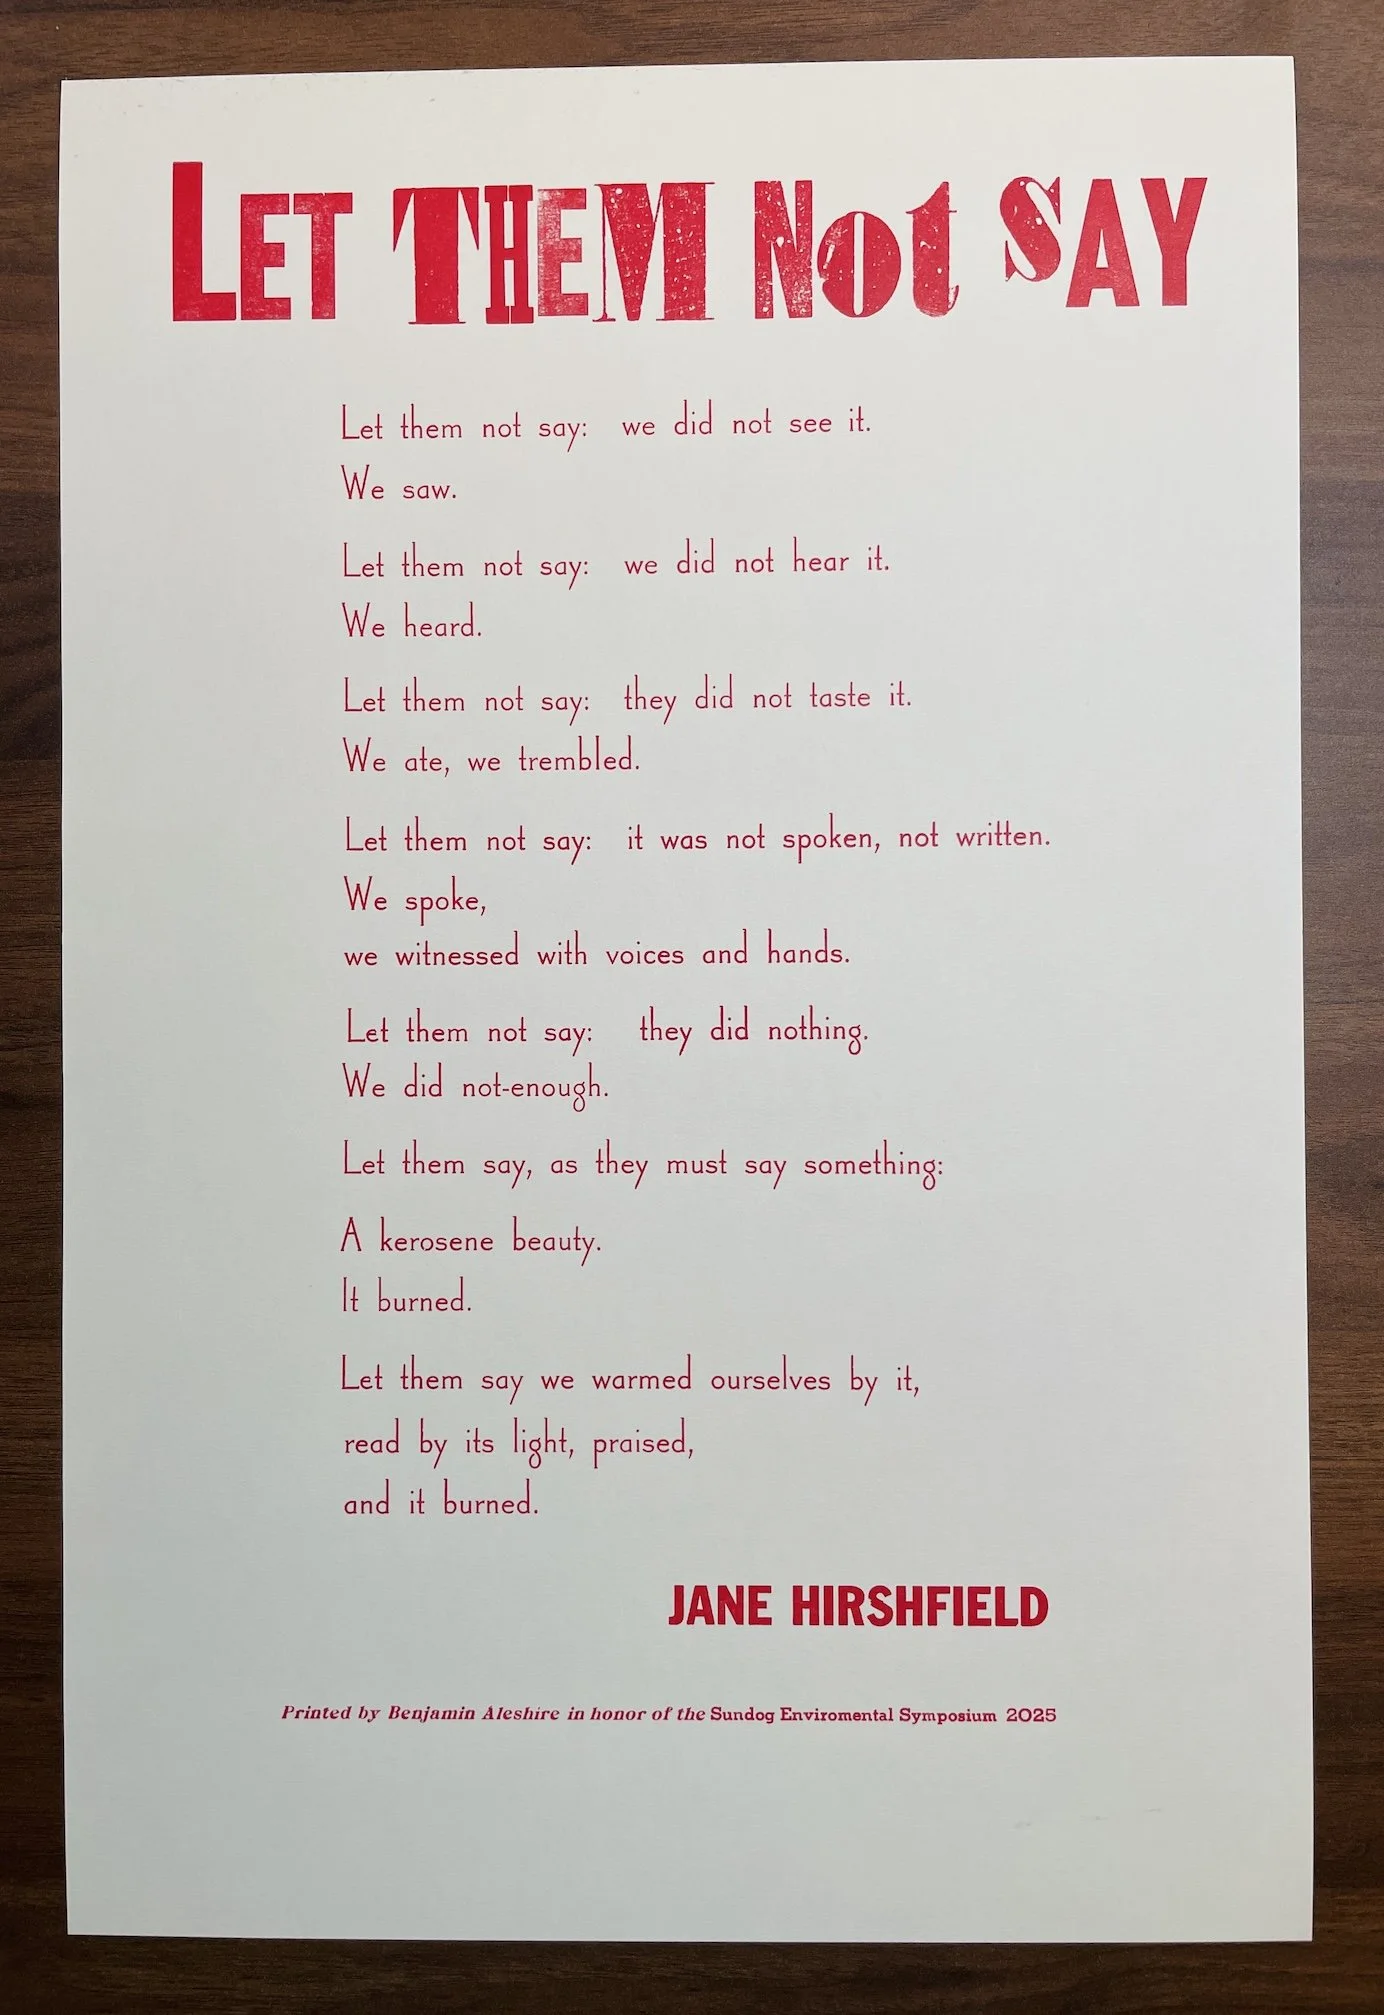 LET THEM Not SAY
Let them not say: we did not see it.
We saw.
Let them not say: we did not hear it.
We heard.
Let them not say: they did not taste it.
We ate, we trembled.
Let them not say: it was not spoken, not written.
We spoke,
we witnessed with voices and hands.
Let them not say: they did nothing.
We did not-enough.
Let them say, as they must say something:
A kerosene beauty.
It burned.
Let them say we warmed ourselves by it,
read by its light, praised,
and it burned.
JANE HIRSHFIELD
Printed by Benjamin Aleshire in honor of the Sundog Enviromental Symposium 2025